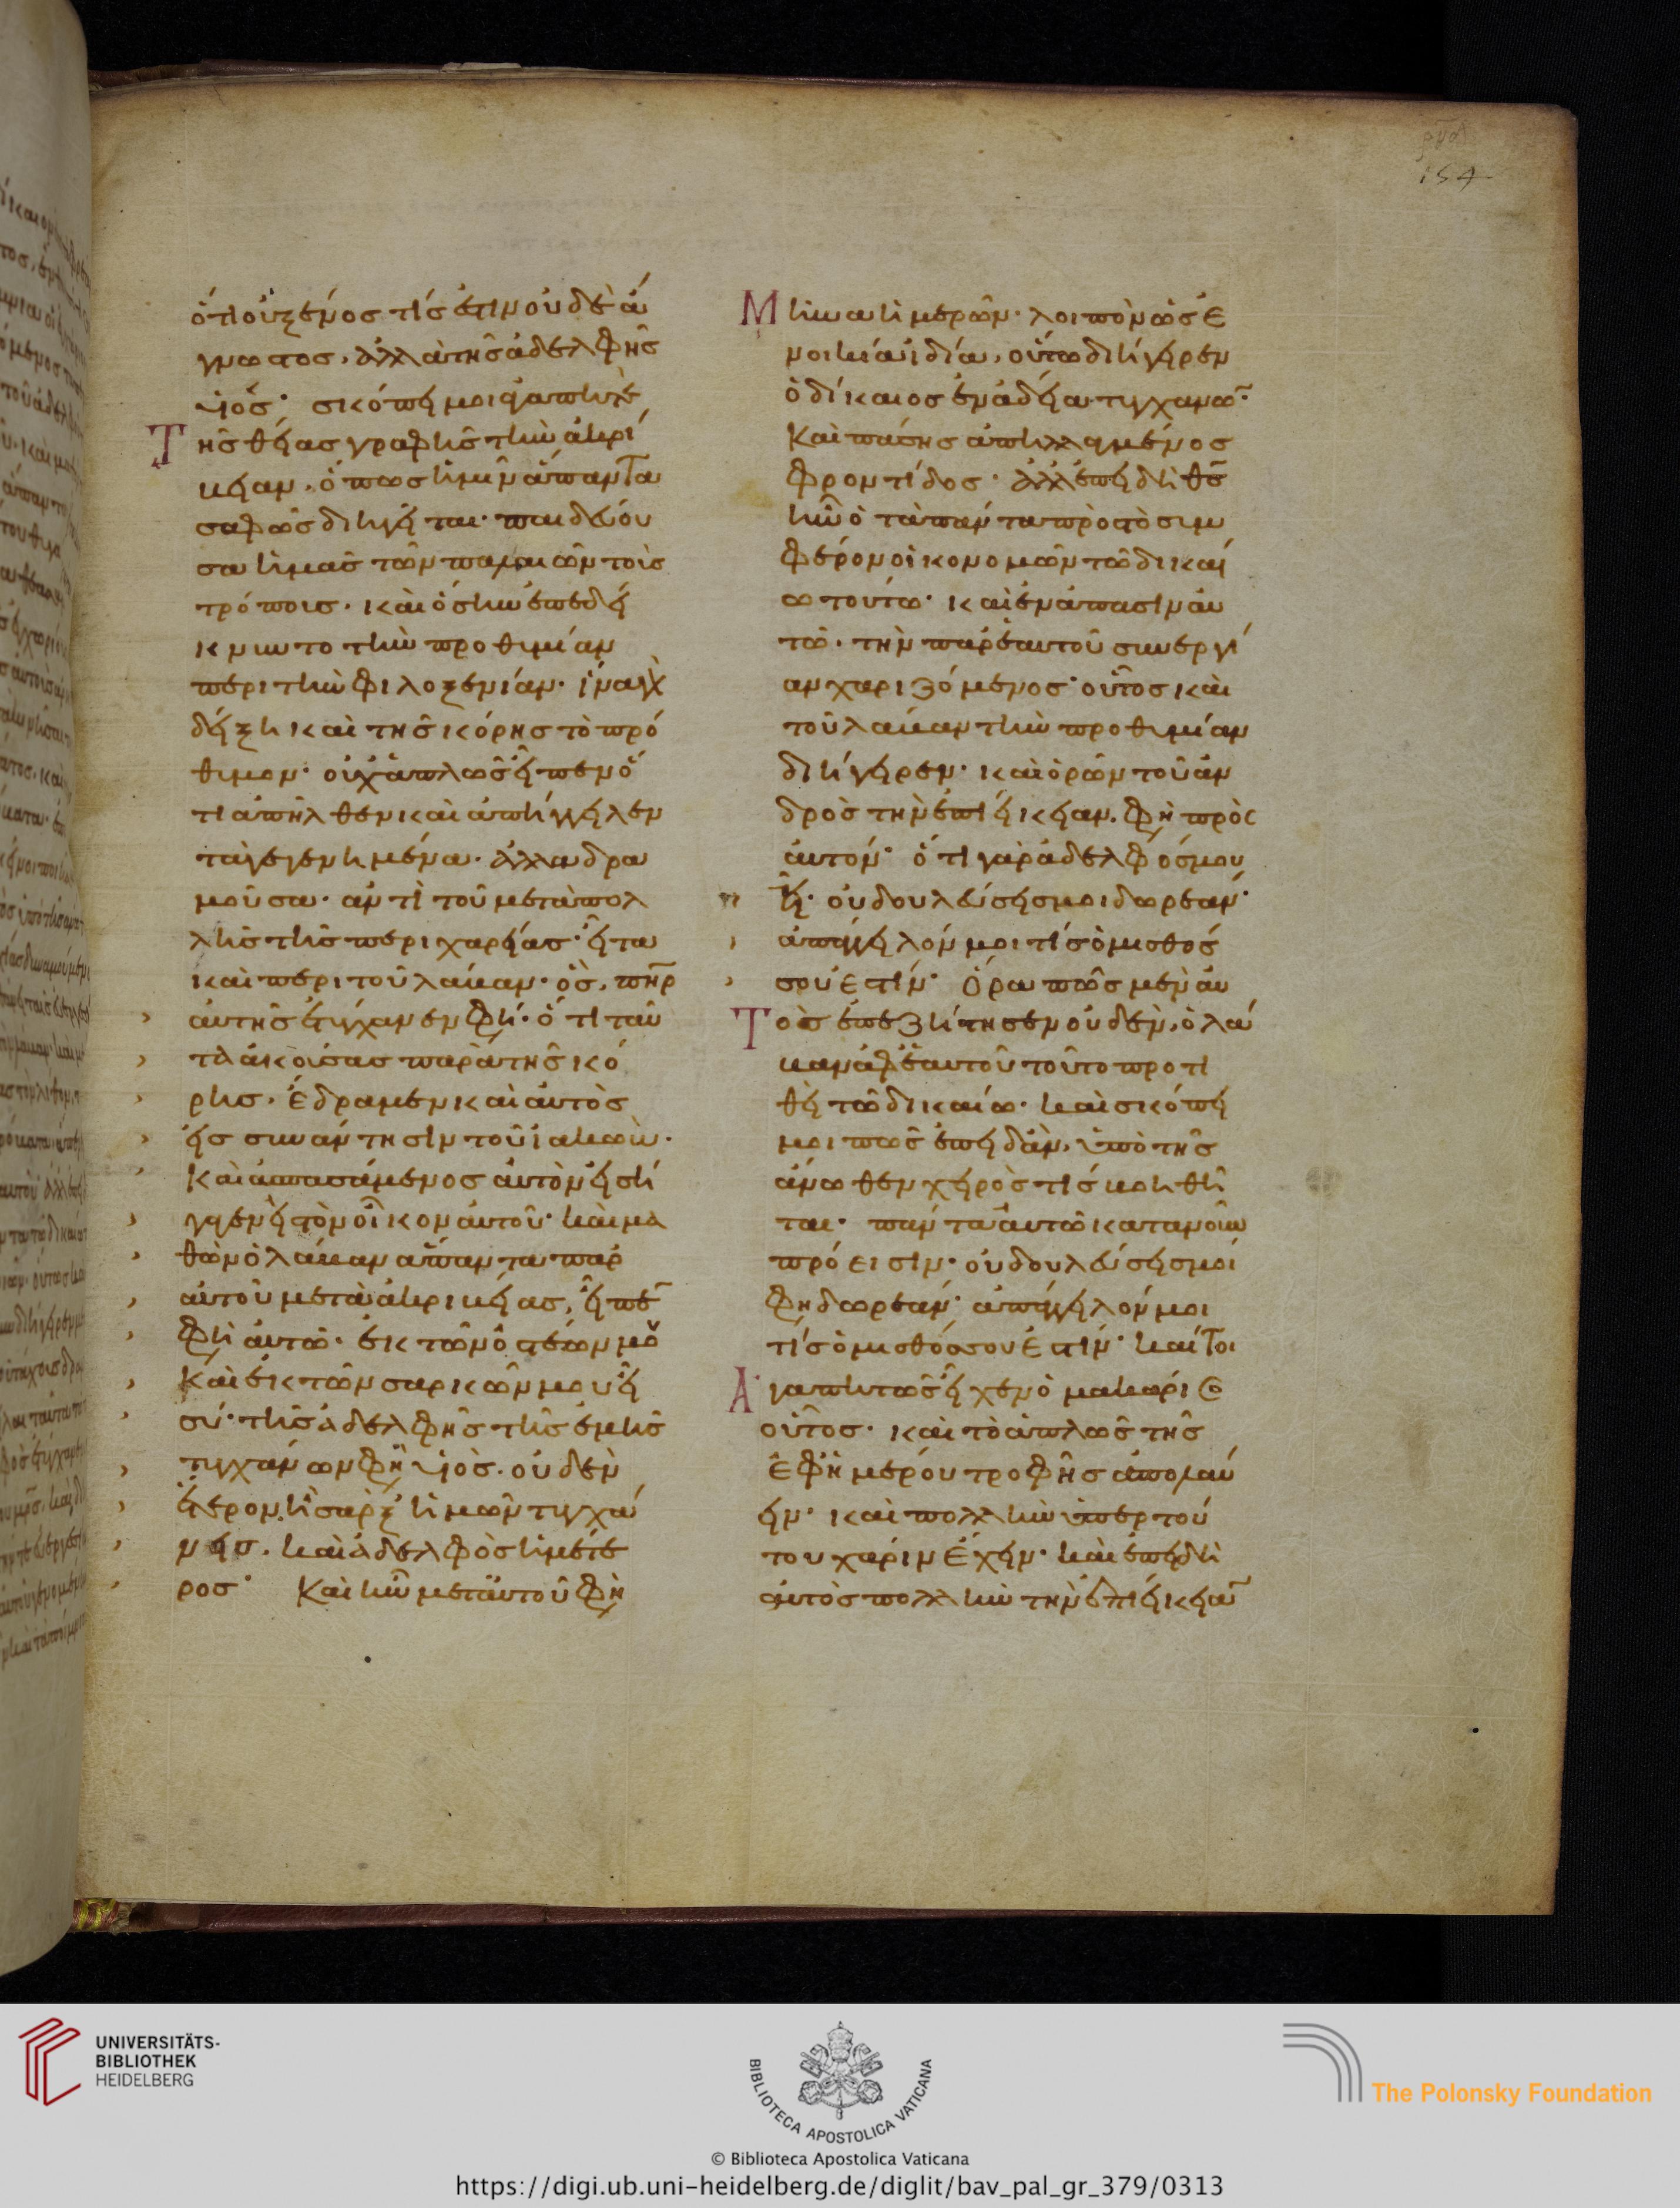 ὅτι οὐ ξένος τίς ἐστιν οὐδὲ ἄ
γνωστος, ἀλλὰ τῆς ἀδελφῆς
υἱός· σκόπει μοι ἀγαπητὲ
Τῆς θείας γραφῆς τὴν ἀκρί
βειαν, ὅπως ἡμῖν ἅπαντα
σαφῶς διηγεῖται· παιδεύου
σα ἡμᾶς τῶν παλαιῶν τοὺς
τρόπους· καὶ ὅσην ἐπεδεί
κνυντο τὴν προθυμίαν
περὶ τὴν φιλοξενίαν· ἵνα γὰρ
δείξη καὶ τῆς κόρης τὸ πρό
θυμον· οὐχ ἁπλῶς εἶπεν ὅ
τι ἀπῆλθεν καὶ ἀπήγγειλεν
τὰ γεγενημένα· ἀλλὰ δρα
μοῦσα· ἀντὶ τοῦ μετὰ πολ
λῆς τῆς περιχαρείας· εἶτα
καὶ περὶ τοῦ λάβαν· ὃς, πηρ
αὐτῆς ἐτύγχανεν φη· ὅτι ταῦ
τα ἀκούσας παρὰ τῆς κό
ρης. ἔδραμεν καὶ αὐτὸς
εἰς συνάντησιν τοῦ ἰακώβ.
καὶ ἀσπασάμενος αὐτὸν εἰσή
γαγεν εἰς τὸν οἶκον αὐτοῦ· καὶ μα
θὼν ὁ λάβαν ἅπαντα παρ
αὐτοῦ μετὰ ἀκριβείας, εἶπε
φη αὐτῶ· ἐκ τῶν ὀστέων μου
καὶ ἐκ τῶν σαρκῶν μου εἶ
σύ· τῆς ἀδελφῆς τῆς ἐμῆς
τυγχάνων φη υἱὸς. οὐδὲν
ἕτερον ἢ σὰρξ ἡμῶν τυγχά
νεις. καὶ ἀδελφὸς ἡμέτε
ρος· καὶ ἦν μετ αὐτοῦ φη
Μῆνα ἡμερῶν· λοιπὸν ὡς ἐ
νοικία ἰδία, οὕτω διήγειρεν
ὁ δίκαιος ἐν ἀδεία τυγχάνων·
καὶ πάσης ἀπηλλαγμένος
φροντίδος· ἀλλ ἐπειδὴ θς
ἦν ὁ τὰ πάντα πρὸς τὸ συμ
φέρον οἰκονομῶν τῶ δικαί
ω τούτω· καὶ ἐν ἅπασιν αὐ
τῶ. τὴν παρ ἑαυτοῦ συνεργί
αν χαριζόμενος· οὗτος καὶ
τοῦ λάβαν τὴν προθυμίαν
διήγειρεν· καὶ ὁρῶν τοῦ ἀν
δρὸς τὴν ἐπιείκειαν. φη πρὸς
αὐτόν· ὅτι γὰρ ἀδελφός μου
εἶ· οὐ δουλεύσεις μοι δωρεάν·
ἀπάγγειλόν μοι τίς ὁ μισθός
σου ἐστίν· ὅρα πῶς μὲν αὐ
Τὸς ἐπεζήτησεν οὐδὲν, ὁ λά
βαν ἀφ ἑαυτοῦ τοῦτο προτι
θεῖ τῶ δικαίω· καὶ σκόπει
μοι πῶς ἐπειδὰν, ὑπὸ τῆς
ἄνωθεν χειρὸς τίς βοηθῆ
ται· πάντα αὐτῶ κατανοῦν
πρόεισιν· οὐ δουλεύσεις μοι
φη δωρεάν· ἀπάγγειλόν μοι
τίς ὁ μισθός σου ἐστίν· καίτοι
Ἀγαπητῶς εἶχεν ὁ μακάριος
οὗτος· καὶ τὸ ἁπλῶς τῆς
ἐφημέρου τροφῆς ἀπολαύ
ειν· καὶ πολλὴν ὑπερ τού
του χάριν ἔχειν· καὶ ἐπειδὴ
αὐτὸς πολλὴν τὴν ἐπιείκειαν
154
UNIVERSITÄTS-
BIBLIOTHEK
HEIDELBERG
BIBLIOTECA APOSTOLICA VATICANA
The Polonsky Foundation
© Biblioteca Apostolica Vaticana
https://digi.ub.uni-heidelberg.de/diglit/bav_pal_gr_379/0313